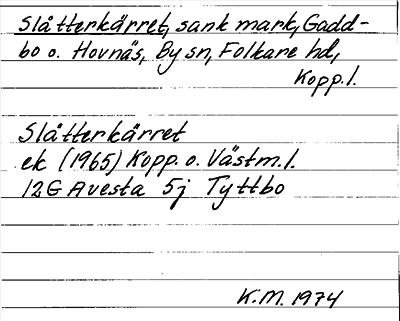 Slåtterkärret, sank mark, Gadd-
bo o. Hovnäs, By sn, Folkare hd,
Kopp.l.
Slåtterkärret
ek (1965) Kopp. o. Västm.l.
12G Avesta 5j Tyttbo
K.M. 1974